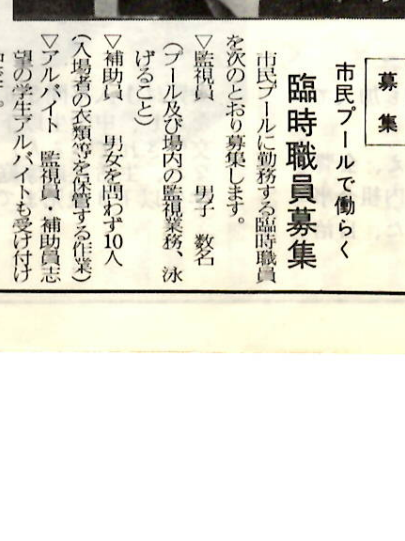 募集
市民プールで働らく
臨時職員募集
市民プールに勤務する臨時職員
を次のとおり募集します。
▽監視員 男子 数名
(プール及び場内の監視業務、泳
げること)
▽補助員 男女を問わず10人
(入場者の衣類等を保管する作業)
▽アルバイト 監視員・補助員志
望の学生アルバイトも受け付け